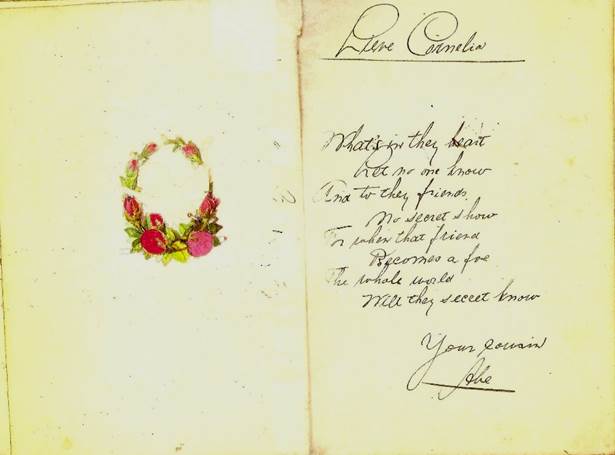 Lieve Cornelia
What's in they heart
Let no one know
And to they friends
No secret show
For when that friend
Becomes a foe
The whole world
Will they secret know
Your cousin
Abe